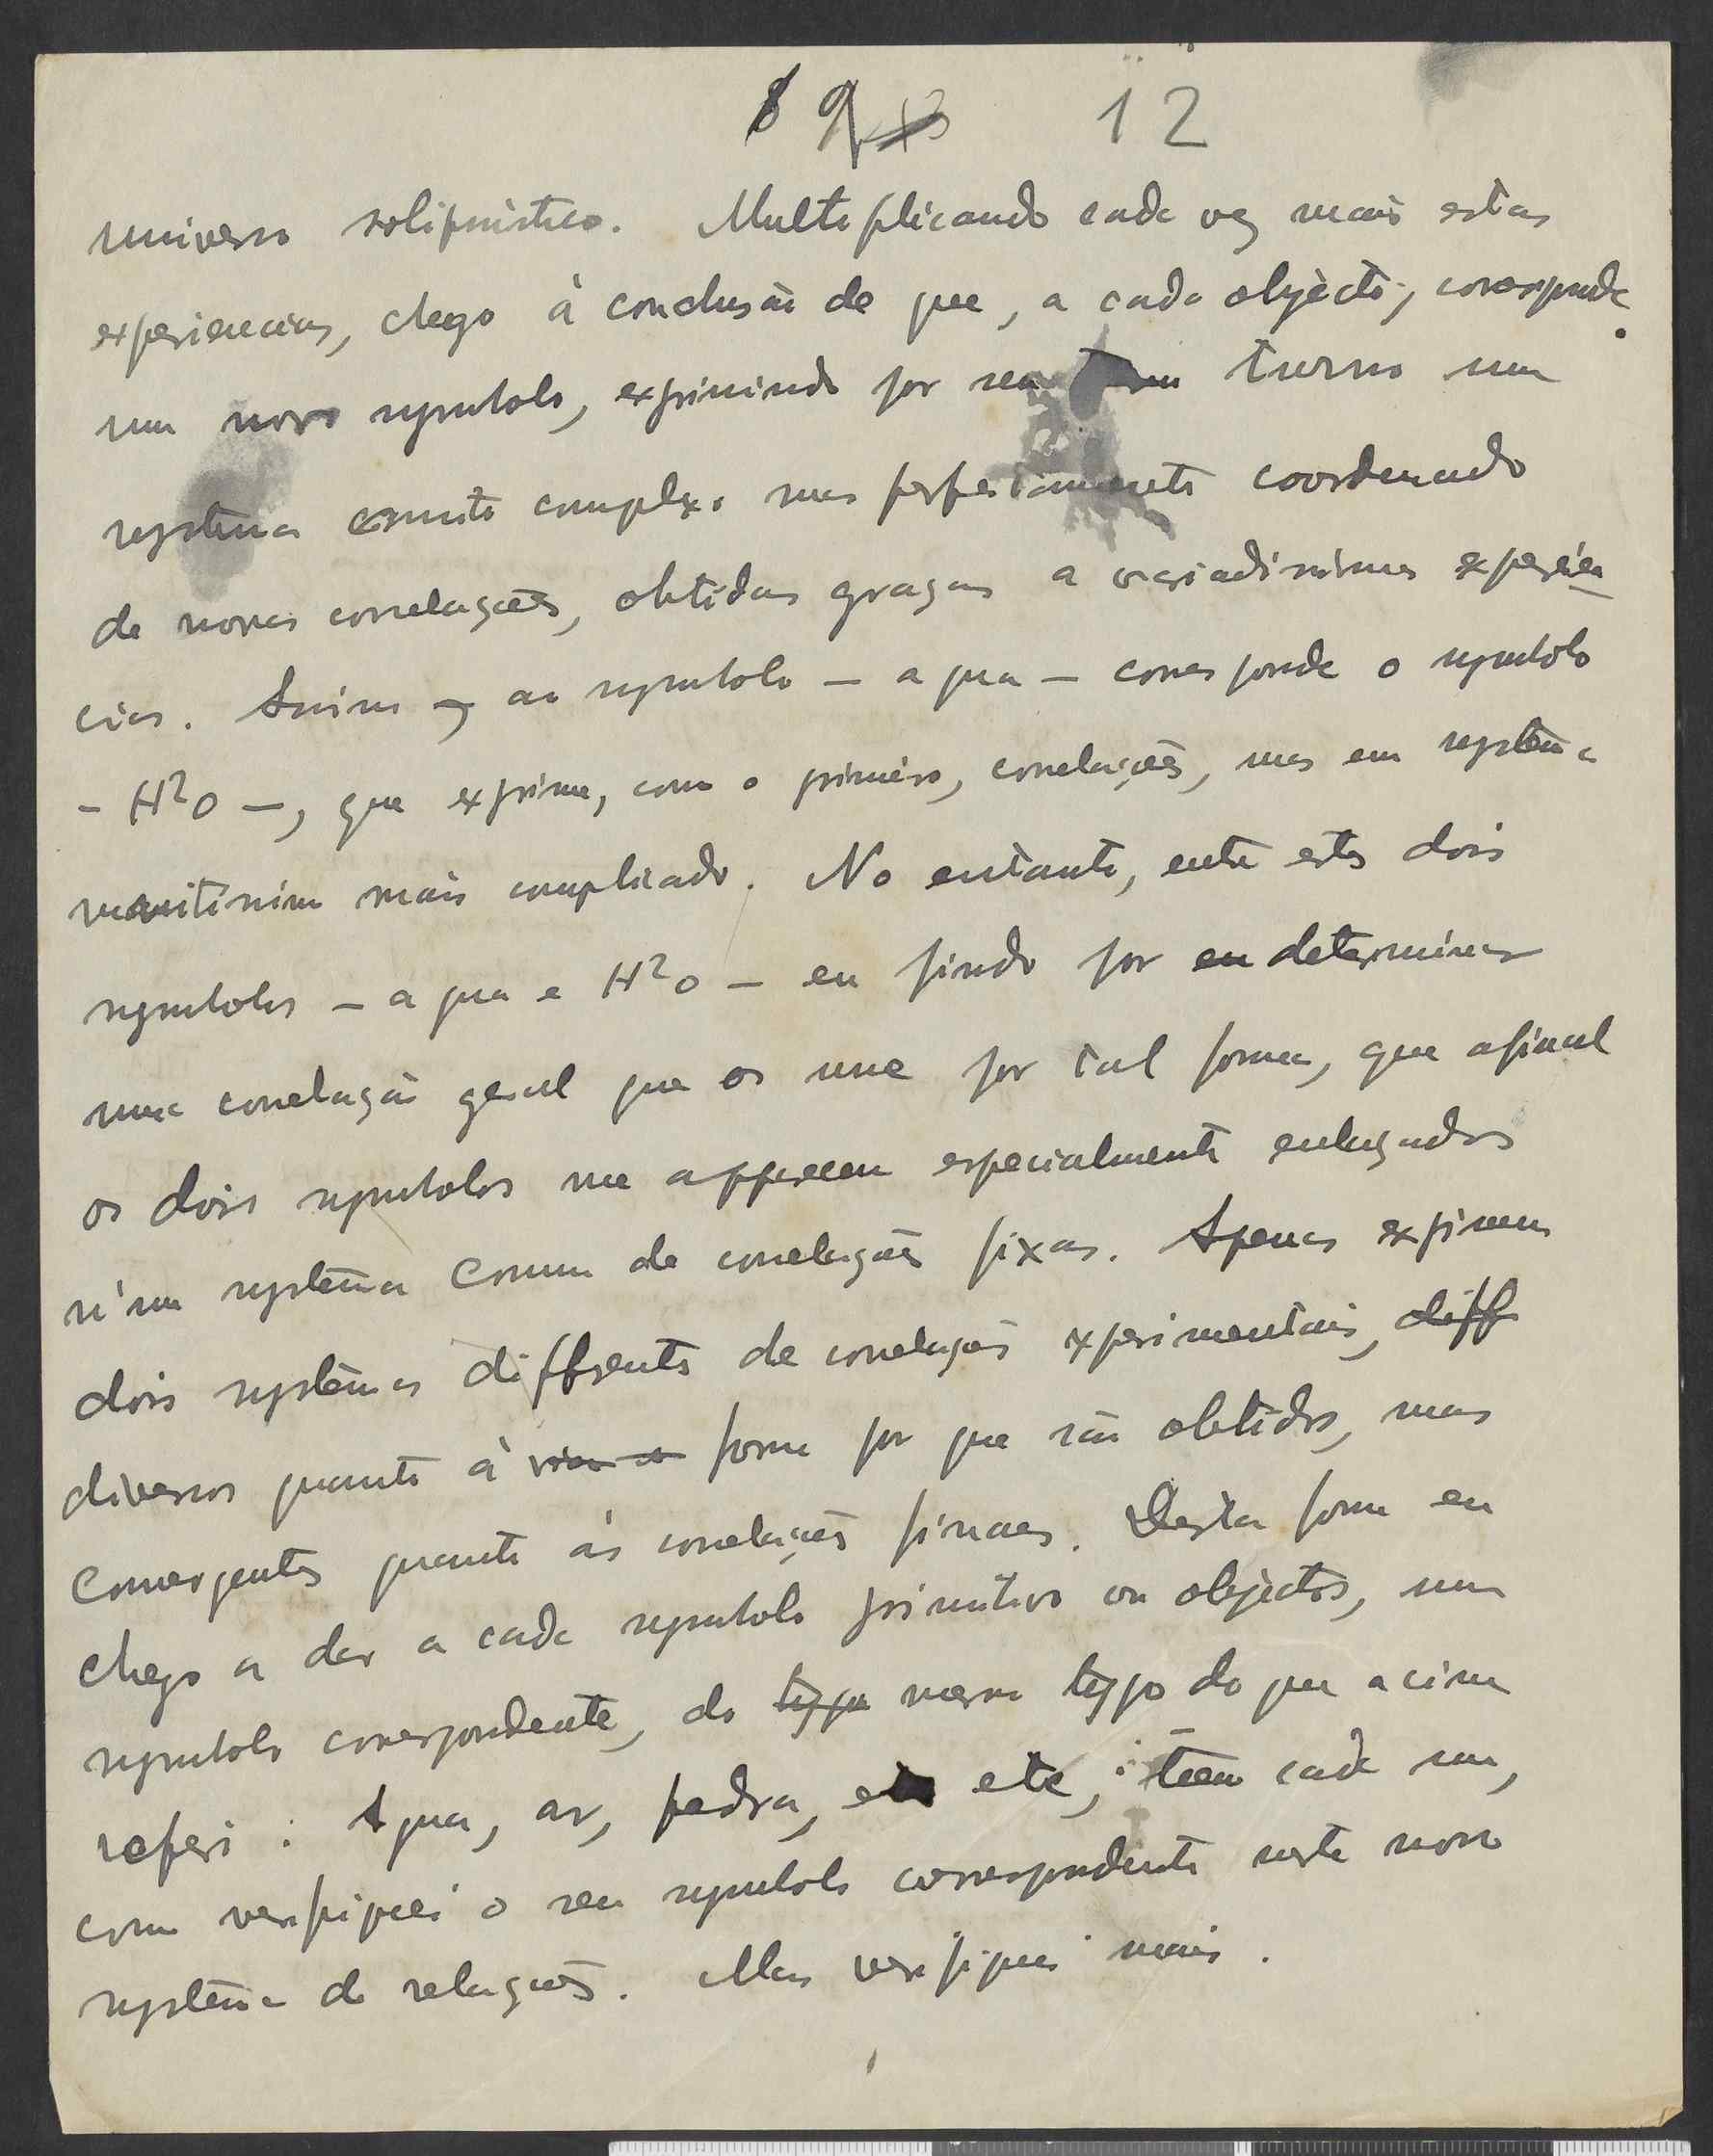 9 12
universo solipsistico. Multiplicando cada vez mais estas
experiencias, chego à conclusão de que, a cada objècto, corresponde
um novo symbolo, exprimindo por seu turno um
systema muito complexo mas perfeitamente coordenado
de novas correlações, obtidas graças a variadissimas experiên
cias. Assim ao symbolo — agua — corresponde o symbolo
— H²O —, que exprime, como o primeiro, correlações, mas em systêma
muitissimo mais complicado. No entanto, entre estes dois
symbolos — agua e H²O — eu findo por determinar
uma correlação geral que os une por tal forma, que afinal
os dois symbolos me apparecem especialmente enlaçados
n'um systêma comum de correlações fixas. Apenas exprimem
dois systêmas differentes de correlações experimentais, diff
diversos quanto à forma por que são obtidos, mas
convergentes quanto ás correlações finaes. Desta forma eu
chego a dar a cada symbolo primitivo ou objectos, um
symbolo correspondente, do typo mesmo typo do que acima
referi: Agua, ar, pedra, etc, têem cada um,
como verifiquei o seu symbolo correspondente neste novo
systêma de relações. Mas verifiquei mais.